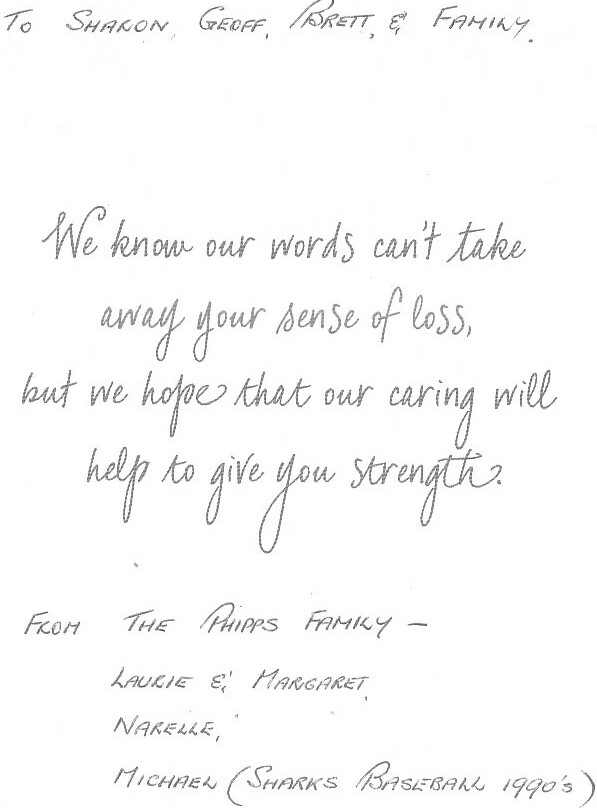 To Sharon, Geoff, Brett, & Family.
We know our words can't take
away your sense of loss,
but we hope that our caring will
help to give you strength.
From The Phipps Family –
Laurie & Margaret,
Narelle,
Michael (Sharks Baseball 1990's)